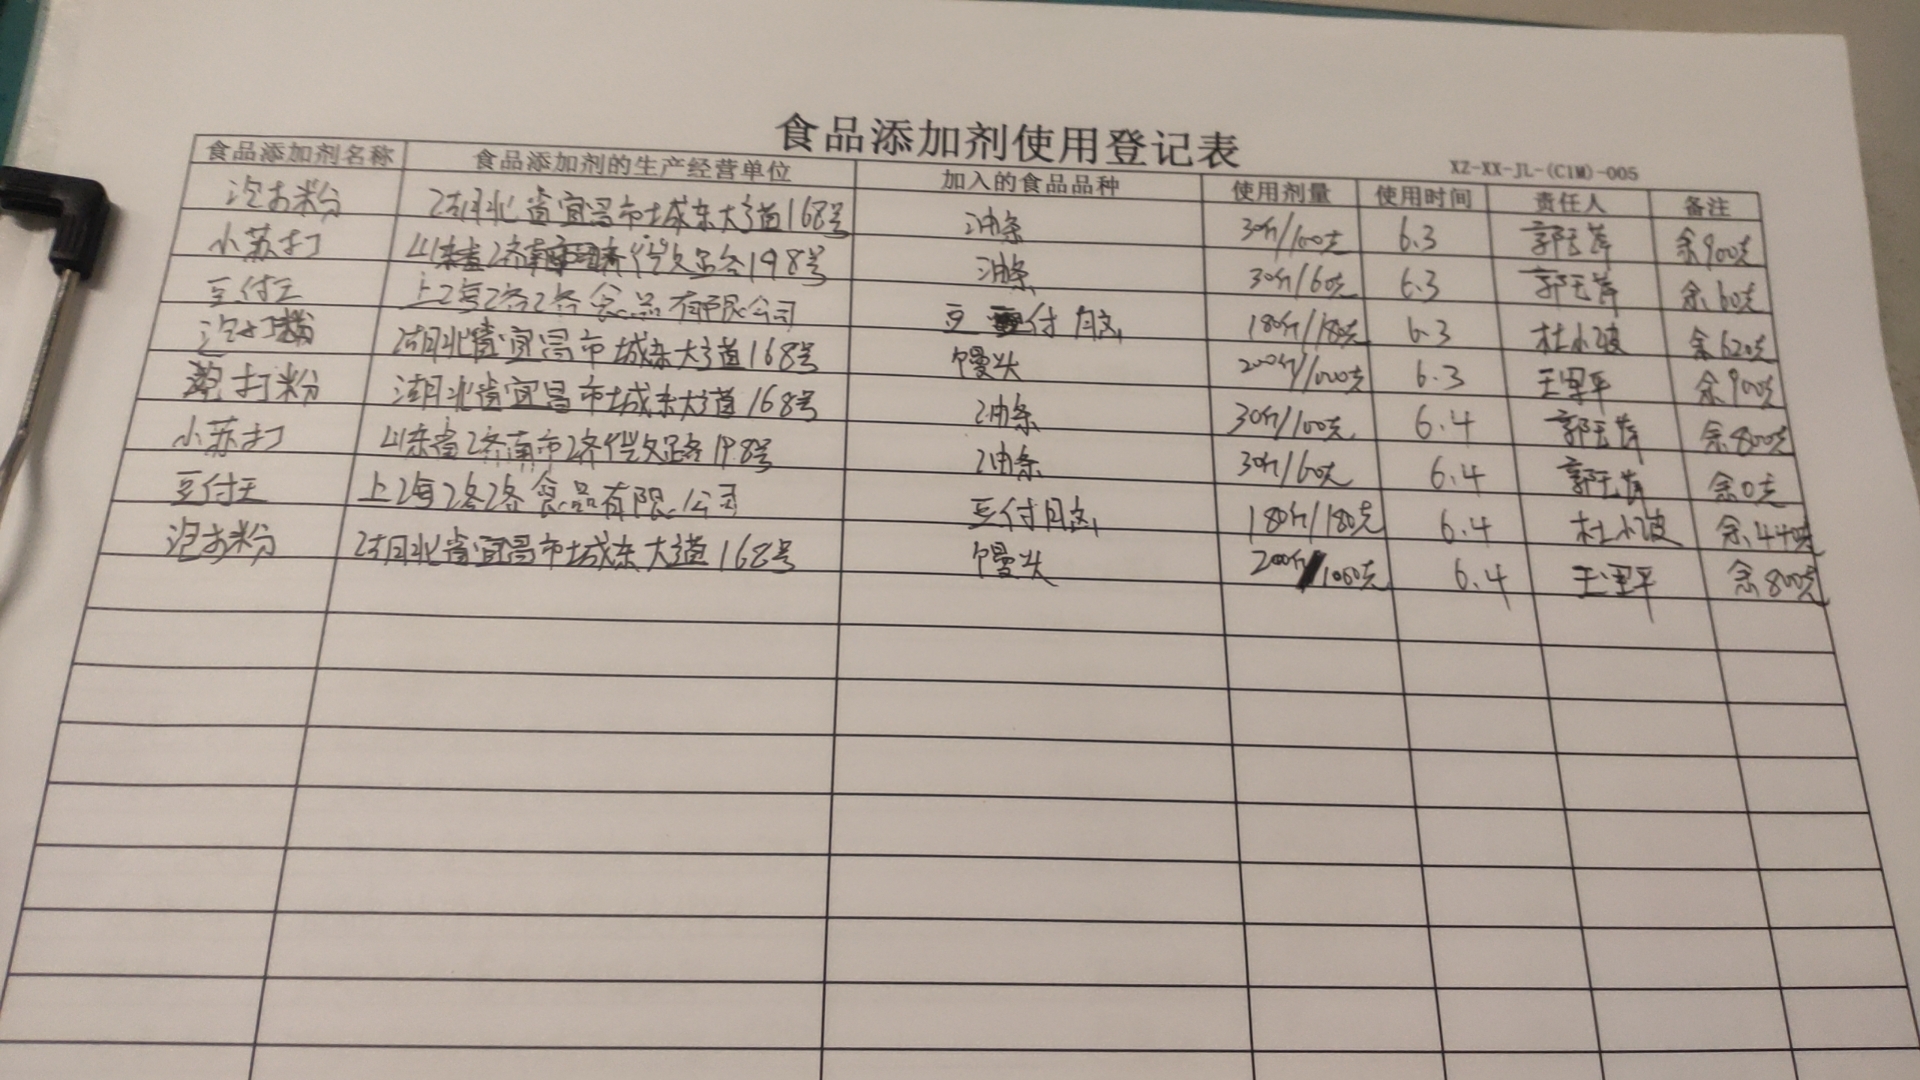 食品添加剂使用登记表
XZ-XX-JL-(CIM)-005
食品添加剂名称 食品添加剂的生产经营单位 加入的食品品种 使用剂量 使用时间 责任人 备注
泡打粉 湖北省宜昌市城东大道168号 油条 30斤/100克 6.3 郭 余900克
小苏打 山东省济南市济 路198号 油条 30斤/60克 6.3 郭 余60克
豆付王 上海 食品有限公司 豆付脑 180斤/180克 6.3 杜小波 余620克
泡打粉 湖北省宜昌市城东大道168号 馒头 200斤/1000克 6.3 王 平 余900克
泡打粉 湖北省宜昌市城东大道168号 油条 30斤/100克 6.4 郭 余800克
小苏打 山东省济南市济 路198号 油条 30斤/60克 6.4 郭 余0克
豆付王 上海 食品有限公司 豆付脑 180斤/180克 6.4 杜小波 余440克
泡打粉 湖北省宜昌市城东大道168号 馒头 200斤/1000克 6.4 王 平 余800克